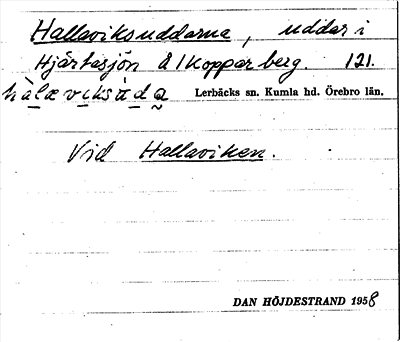 Hallaviksuddarna, uddar i
Hjärtasjön å / Kopparberg. 121.
hàlaviksàda Lerbäcks sn. Kumla hd. Örebro län.
Vid Hallaviken.
DAN HÖJDESTRAND 1958